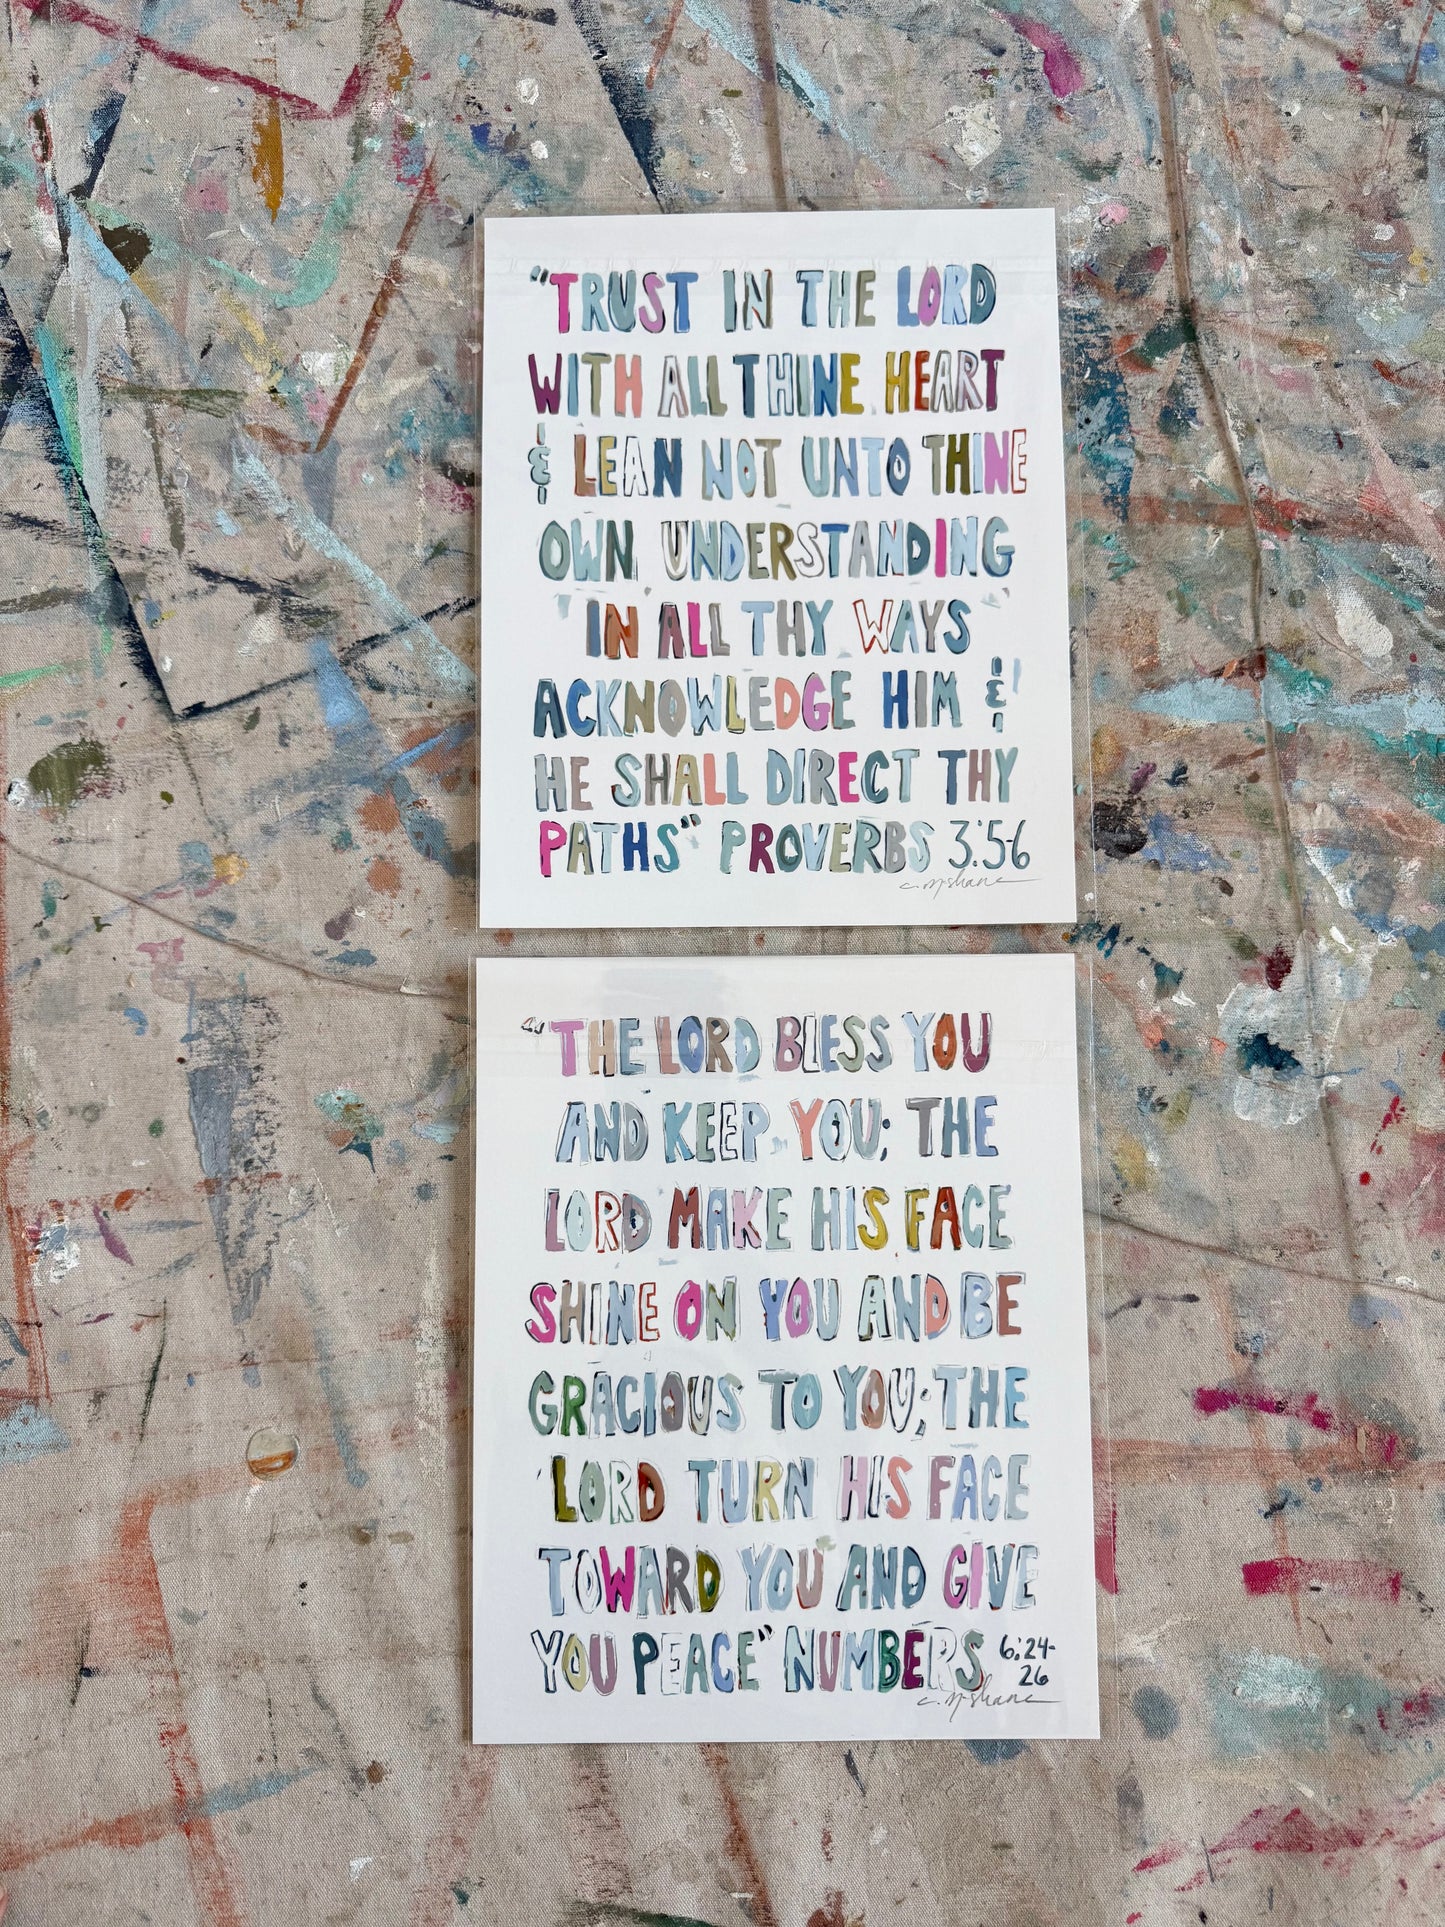 "TRUST IN THE LORD
WITH ALL THINE HEART
& LEAN NOT UNTO THINE
OWN UNDERSTANDING
IN ALL THY WAYS
ACKNOWLEDGE HIM &
HE SHALL DIRECT THY
PATHS" PROVERBS 3:5-6
c. mcshane
"THE LORD BLESS YOU
AND KEEP YOU; THE
LORD MAKE HIS FACE
SHINE ON YOU AND BE
GRACIOUS TO YOU; THE
LORD TURN HIS FACE
TOWARD YOU AND GIVE
YOU PEACE" NUMBERS 6:24-
26
c. mcshane